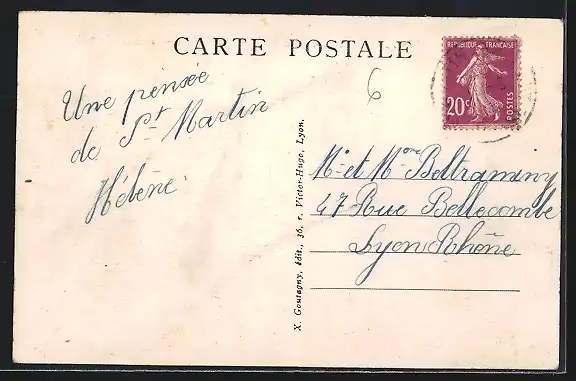 CARTE POSTALE
REPUBLIQUE FRANÇAISE
20c
POSTES
6
Une pensée
de St Martin
Hélène
X. Goutagny, édit., 36, r. Victor-Hugo, Lyon.
Mr et Mme Beltraminy
47 Rue Bellecombe
Lyon Rhône